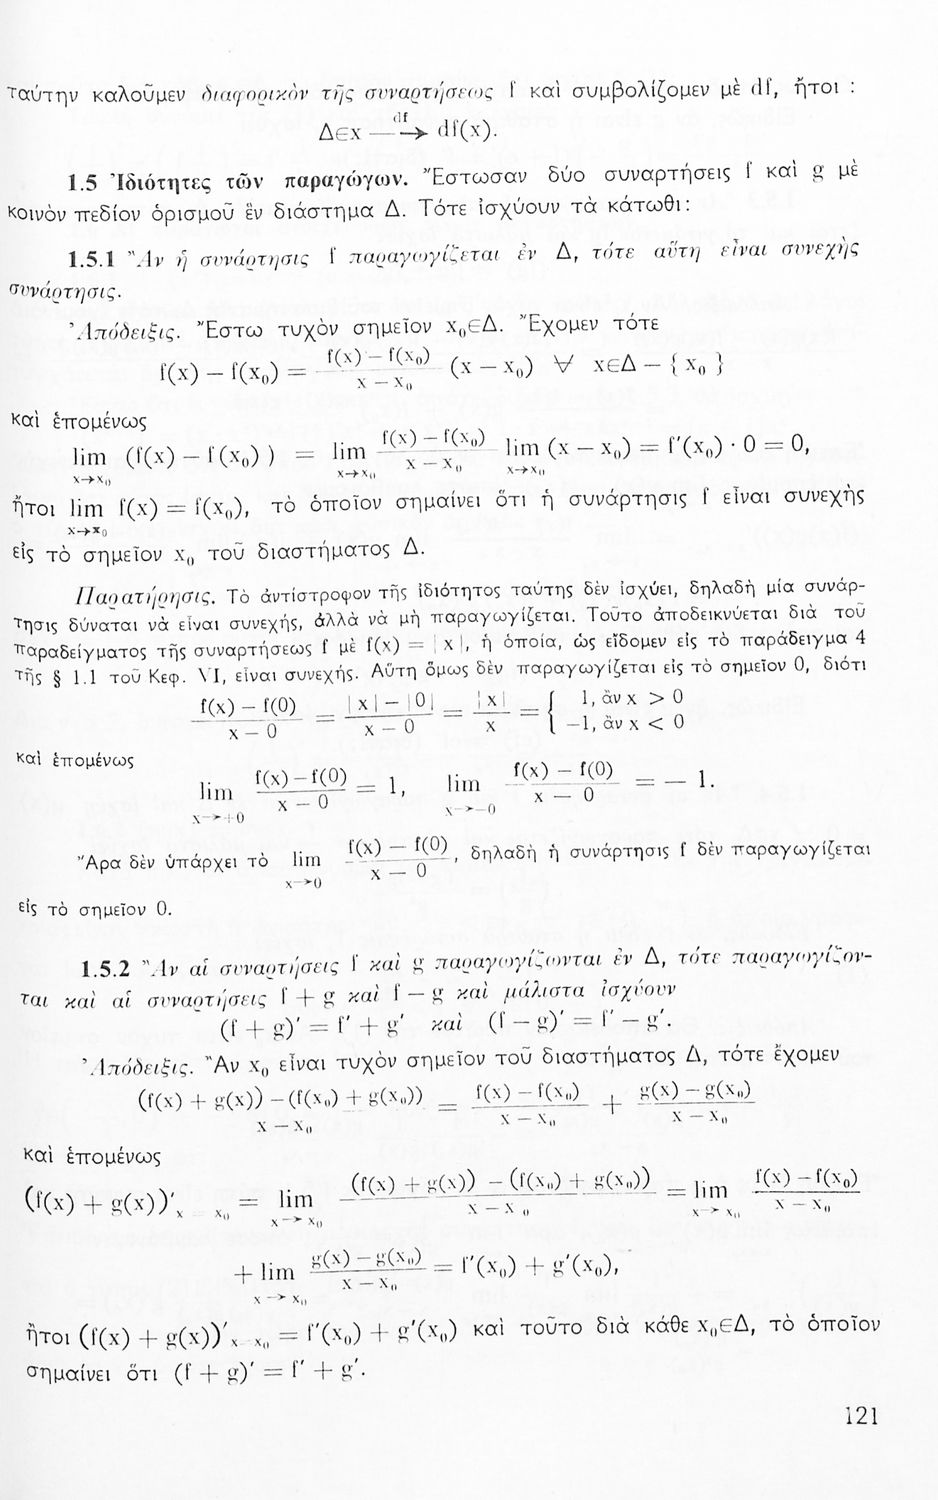 ταύτην καλοῦμεν διαφορικὸν τῆς συναρτήσεως f καὶ συμβολίζομεν μὲ df, ἤτοι :
Δ∈x —df→ df(x).
1.5 Ἰδιότητες τῶν παραγώγων. Ἔστωσαν δύο συναρτήσεις f καὶ g μὲ
κοινὸν πεδίον ὁρισμοῦ ἓν διάστημα Δ. Τότε ἰσχύουν τὰ κάτωθι:
1.5.1 Ἂν ἡ συνάρτησις f παραγωγίζεται ἐν Δ, τότε αὕτη εἶναι συνεχὴς
συνάρτησις.
Ἀπόδειξις. Ἔστω τυχὸν σημεῖον x₀∈Δ. Ἔχομεν τότε
f(x) — f(x₀) = (f(x) — f(x₀))/(x — x₀) (x — x₀) ∀ x∈Δ — { x₀ }
καὶ ἑπομένως
lim (f(x) — f(x₀) ) = lim (f(x) — f(x₀))/(x — x₀) lim (x — x₀) = f'(x₀) · 0 = 0,
x→x₀ x→x₀ x→x₀
ἤτοι lim f(x) = f(x₀), τὸ ὁποῖον σημαίνει ὅτι ἡ συνάρτησις f εἶναι συνεχὴς
x→x₀
εἰς τὸ σημεῖον x₀ τοῦ διαστήματος Δ.
Παρατήρησις. Τὸ ἀντίστροφον τῆς ἰδιότητος ταύτης δὲν ἰσχύει, δηλαδὴ μία συνάρ-
τησις δύναται νὰ εἶναι συνεχής, ἀλλὰ νὰ μὴ παραγωγίζεται. Τοῦτο ἀποδεικνύεται διὰ τοῦ
παραδείγματος τῆς συναρτήσεως f μὲ f(x) = | x |, ἡ ὁποία, ὡς εἴδομεν εἰς τὸ παράδειγμα 4
τῆς § 1.1 τοῦ Κεφ. VI, εἶναι συνεχής. Αὕτη ὅμως δὲν παραγωγίζεται εἰς τὸ σημεῖον 0, διότι
(f(x) — f(0))/(x — 0) = (| x | — | 0 |)/(x — 0) = | x |/x = { 1, ἂν x > 0
—1, ἂν x < 0
καὶ ἑπομένως
lim (f(x)—f(0))/(x — 0) = 1, lim (f(x) — f(0))/(x — 0) = — 1.
x→+0 x→—0
Ἄρα δὲν ὑπάρχει τὸ lim (f(x) — f(0))/(x — 0), δηλαδὴ ἡ συνάρτησις f δὲν παραγωγίζεται
x→0
εἰς τὸ σημεῖον 0.
1.5.2 Ἂν αἱ συναρτήσεις f καὶ g παραγωγίζωνται ἐν Δ, τότε παραγωγίζον-
ται καὶ αἱ συναρτήσεις f + g καὶ f — g καὶ μάλιστα ἰσχύουν
(f + g)' = f' + g' καὶ (f — g)' = f' — g'.
Ἀπόδειξις. Ἂν x₀ εἶναι τυχὸν σημεῖον τοῦ διαστήματος Δ, τότε ἔχομεν
((f(x) + g(x)) —(f(x₀) + g(x₀)))/(x — x₀) = (f(x) — f(x₀))/(x — x₀) + (g(x) — g(x₀))/(x — x₀)
καὶ ἑπομένως
(f(x) + g(x))'ₓ x₀ = lim ((f(x) + g(x)) — (f(x₀) + g(x₀)))/(x — x₀) = lim (f(x) — f(x₀))/(x — x₀)
x→x₀ x→x₀
+ lim (g(x) — g(x₀))/(x — x₀) = f'(x₀) + g'(x₀),
x→x₀
ἤτοι (f(x) + g(x))'ₓ x₀ = f'(x₀) + g'(x₀) καὶ τοῦτο διὰ κάθε x₀∈Δ, τὸ ὁποῖον
σημαίνει ὅτι (f + g)' = f' + g'.
121